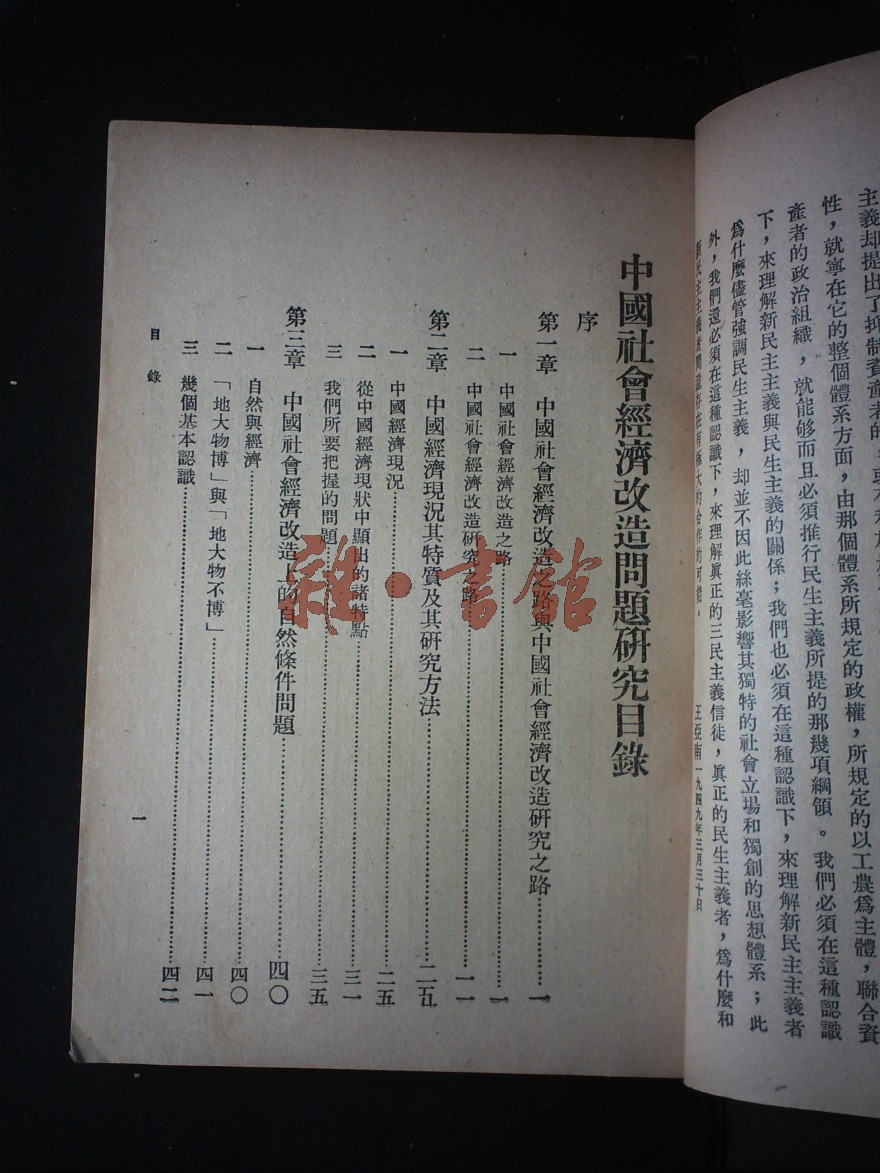 主義却提出了抑制資產者的，或不利
性，就寧在它的整個體系方面，由那個體系所規定的政權，所規定的以工農爲主體，聯合資
產者的政治組織，就能够而且必須推行民生主義所提的那幾項綱領。我們必須在這種認識
下，來理解新民主主義與民生主義的關係；我們也必須在這種認識下，來理解新民主主義者
爲什麼儘管強調民生主義，却並不因此絲毫影響其獨特的社會立場和獨創的思想體系；此
外，我們還必須在這種認識下，來理解眞正的三民主義信徒，眞正的民生主義者，爲什麼和
新民主主義者間還存在有極大的合作的可能。
王亞南一九四九年三月三十日
中國社會經濟改造問題研究目錄
序
第一章 中國社會經濟改造之路與中國社會經濟改造研究之路……一
一 中國社會經濟改造之路……一
二 中國社會經濟改造研究之路……一一
第二章 中國經濟現況其特質及其研究方法……二五
一 中國經濟現況……二五
二 從中國經濟現狀中顯出的諸特點……三一
三 我們所要把握的問題……三五
第三章 中國社會經濟改造上的自然條件問題……四〇
一 自然與經濟……四〇
二 「地大物博」與「地大物不博」……四一
三 幾個基本認識……四二
目錄
一
雜·書館